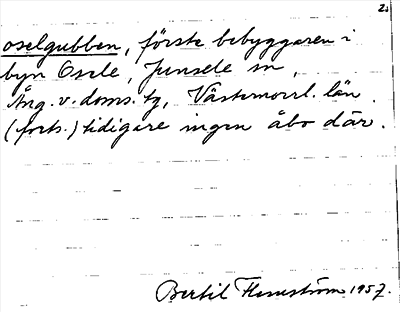 2.
oselgubben, förste bebyggaren i
byn Osele, Junsele sn,
Ång. v. doms. tg, Västernorrl. län.
(forts.) tidigare ingen åbo där.
Bertil Flemström 1957.